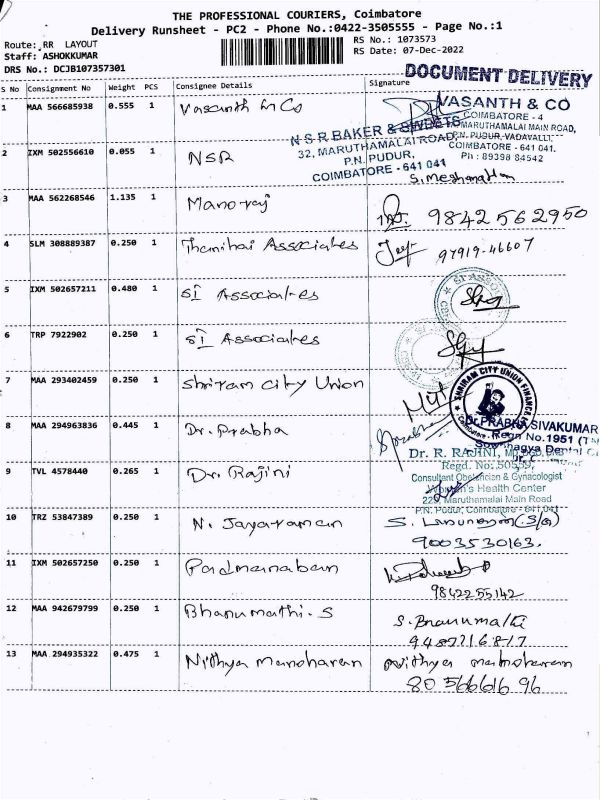 THE PROFESSIONAL COURIERS, Coimbatore
Delivery Runsheet - PC2 - Phone No.:0422-3505555 - Page No.:1
Route: RR LAYOUT
RS No.: 1073573
Staff: ASHOKKUMAR
RS Date: 07-Dec-2022
DRS No.: DCJB107357301
DOCUMENT DELIVERY
S No Consignment No Weight PCS Consignee Details Signature
1 MAA 566685938 0.555 1 Vasanth & Co
VASANTH & CO
COIMBATORE - 4
MARUTHAMALAI MAIN ROAD,
P.N. PUDUR, VADAVALLI,
COIMBATORE - 641 041.
Ph : 89398 84542
2 IXM 502556610 0.055 1 NSR
N S R BAKER & SWEETS
32, MARUTHAMALAI ROAD,
P.N. PUDUR,
COIMBATORE - 641 041
3 MAA 562268546 1.135 1 Manoraj
9842562950
4 SLM 308889387 0.250 1 Associates
97919-46607
5 IXM 502657211 0.480 1 SI Associates
6 TRP 7922902 0.250 1 SI Associates
7 MAA 293402459 0.250 1 Shriram City Union
SHRIRAM CITY UNION FINANCE
8 MAA 294963836 0.445 1 Dr. Prabha
Dr. PRABHA SIVAKUMAR
Regn No.1951
Dental
9 TVL 4578440 0.265 1 Dr. Rajini
Dr. R. RAJINI,
Regd. No: 50559,
Consultant Obstetrician & Gynacologist
Women's Health Center
229, Maruthamalai Main Road
P.N. Pudur, Coimbatore - 641 041
10 TRZ 53847389 0.250 1 N. Jayaraman
9003530163.
11 IXM 502657250 0.250 1 Padmanaban
9842255142
12 MAA 942679799 0.250 1 Bhanumathi. S
S. Bhanumathi
9487216817
13 MAA 294935322 0.475 1 Nithya Manoharan
Nithya Manoharan
8056661696